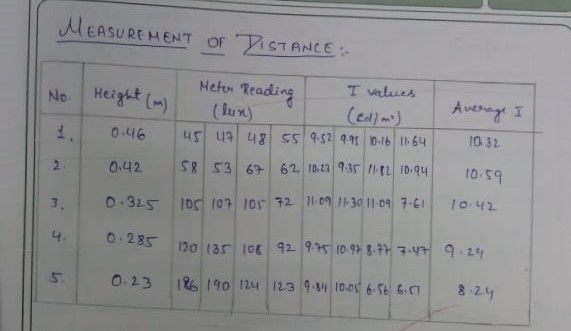 MEASUREMENT OF DISTANCE:-
No. Height (m) Meter Reading (lux) I values (Cd/m²) Average I
1. 0.46 45 47 48 55 9.52 9.95 10.16 11.64 10.32
2. 0.42 58 53 67 62 10.23 9.35 11.82 10.94 10.59
3. 0.325 105 107 105 72 11.09 11.30 11.09 7.61 10.42
4. 0.285 120 135 108 92 9.75 10.97 8.77 7.47 9.24
5. 0.23 186 190 124 123 9.84 10.05 6.56 6.51 8.24